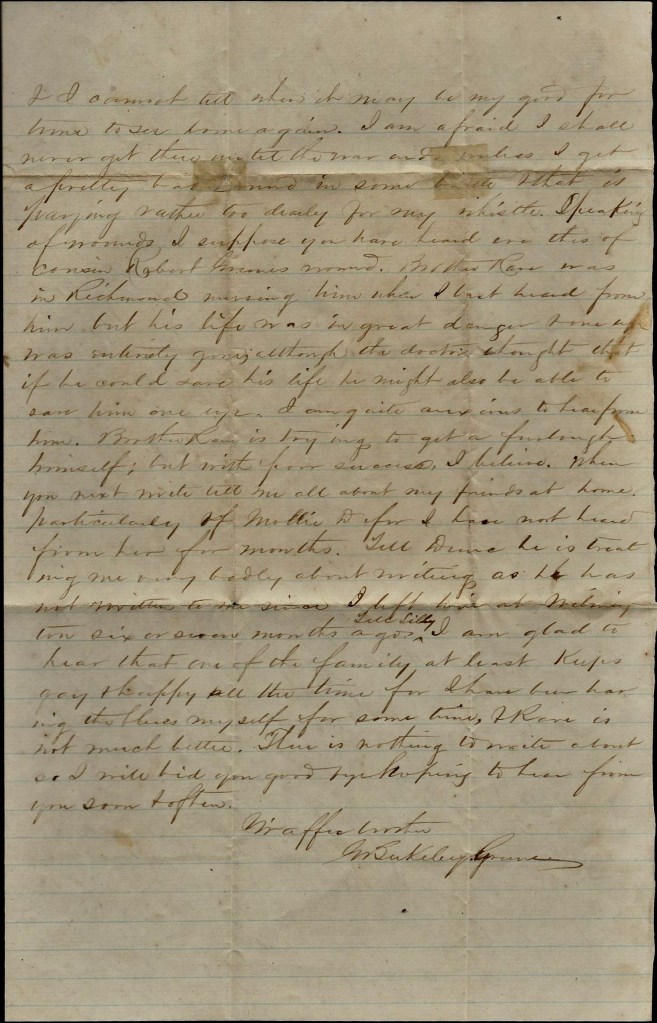 & I cannot tell when it may be my good for
tune to see home again. I am afraid I shall
never get there until the war ends unless I get
a pretty bad wound in some battle & that is
paying rather too dearly for my whistle. Speaking
of wounds, I suppose you have heard ere this of
cousin Robert Greenes wound. Brother was
in Richmond nursing him when I last heard from
him but his life was in great danger & one eye
was entirely gone, although the doctor thought that
if he could save his life he might also be able to
save him one eye. I am quite anxious to hear from
him. Brother is trying to get a furlough
himself; but with poor success, I believe. When
you next write tell me all about my friends at home.
Particularly of Mollie D for I have not heard
from her for months. Tell he is treat
ing me very badly about writing as he has
not written to me since I left him at Wilming
ton six or seven months ago. Tell Silly I am glad to
hear that one of the family at least keeps
gay & happy all the time for I have been hav
ing the blues myself for some time, & is
not much better. There is nothing to write about
so I will bid you good bye hoping to hear from
you soon & often.
Yr affec brother
W Berkeley Greene